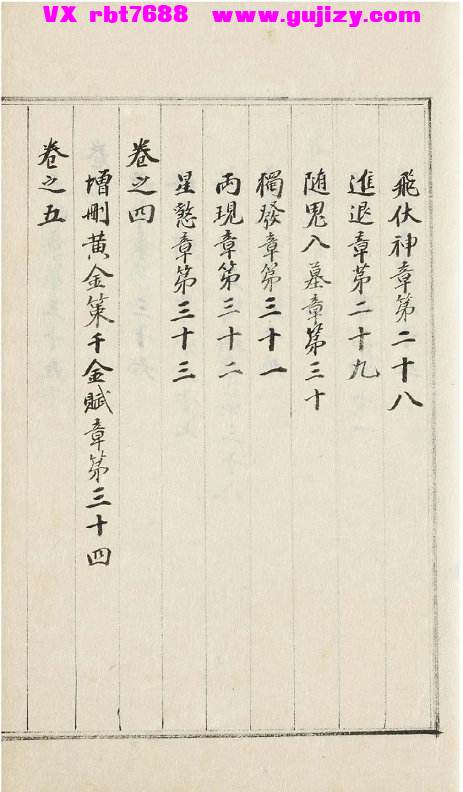 VX rbt7688 www.gujizy.com
飛伏神章第二十八
進退章苐二十九
随鬼入墓章第三十
獨發章第三十一
兩現章第三十二
星煞章第三十三
卷之四
增刪黄金策千金賦章第三十四
卷之五